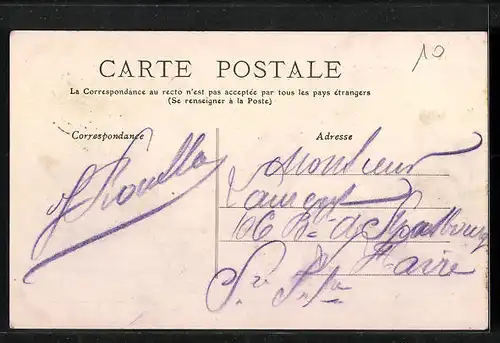 10
CARTE POSTALE
La Correspondance au recto n'est pas acceptée par tous les pays étrangers
(Se renseigner à la Poste)
Correspondance
Adresse
Monsieur
Laurent
166 Bd de Strasbourg
Havre